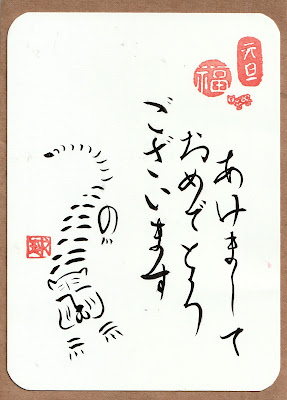 元旦
福
あけまして
おめでとう
ございます